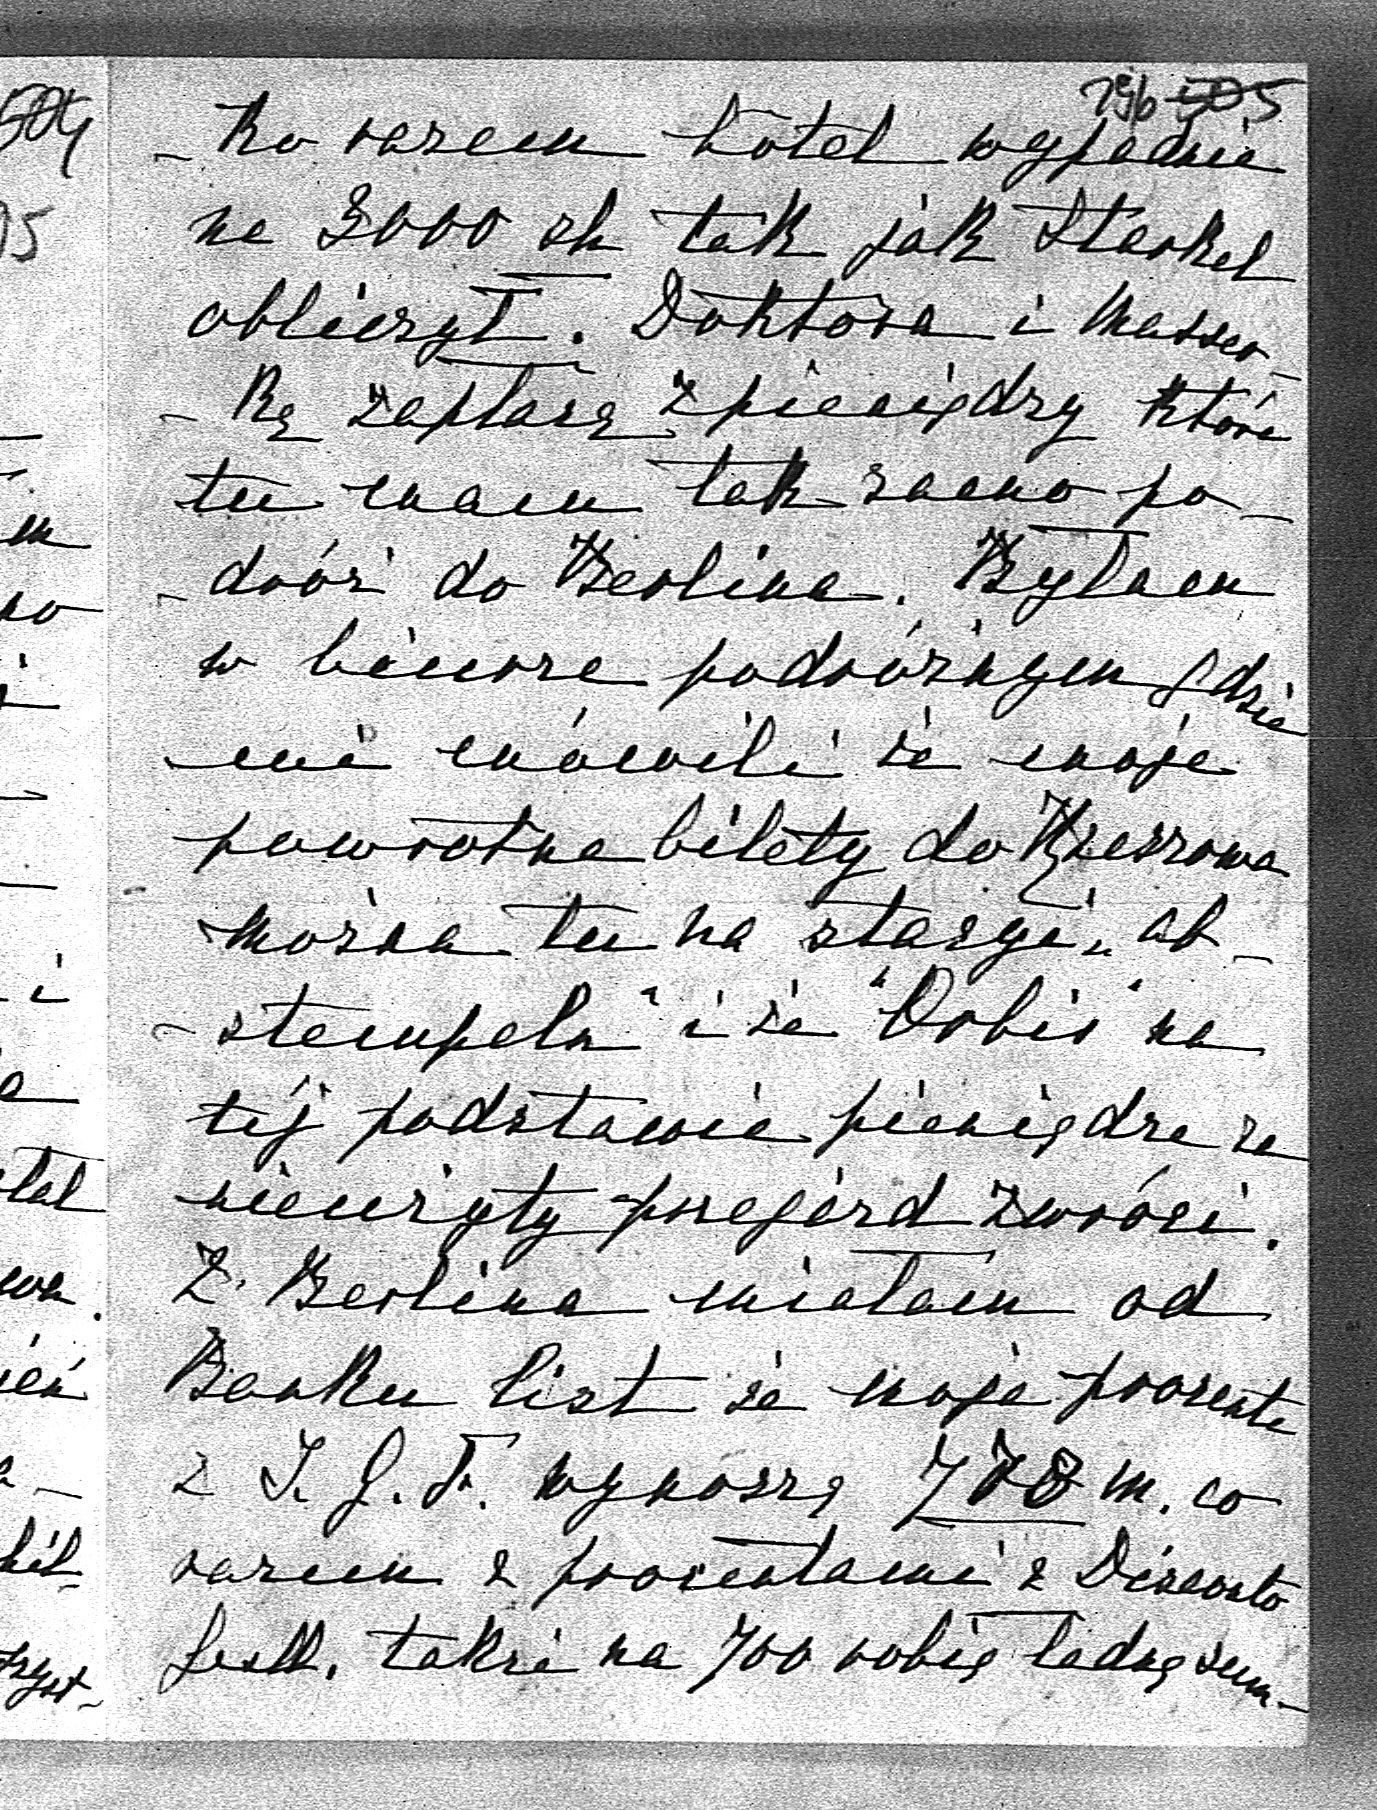 296 505
- ko razem hotel wypadnie
na 3000 zł tak jak Starkel
obliczył. Doktora i Masser-
- kę zapłacę z pieniędzy które
tu mam tak samo po-
- dróż do Berlina. Byłam
w biurze podróżnym gdzie
mi mówili że moje
powrotne bilety do Rzeszowa
można tu na stacyi „ab-
- stempeln" i że "Orbis" na
tej podstawie pieniędze za
nieużyty przejazd zwróci.
Z Berlina miałam od
Banku list że moje procente
z I. G. F. wynoszą 778 m. co
razem z procentami z Disconto
Gesll. także na 700 robię ładną sum-